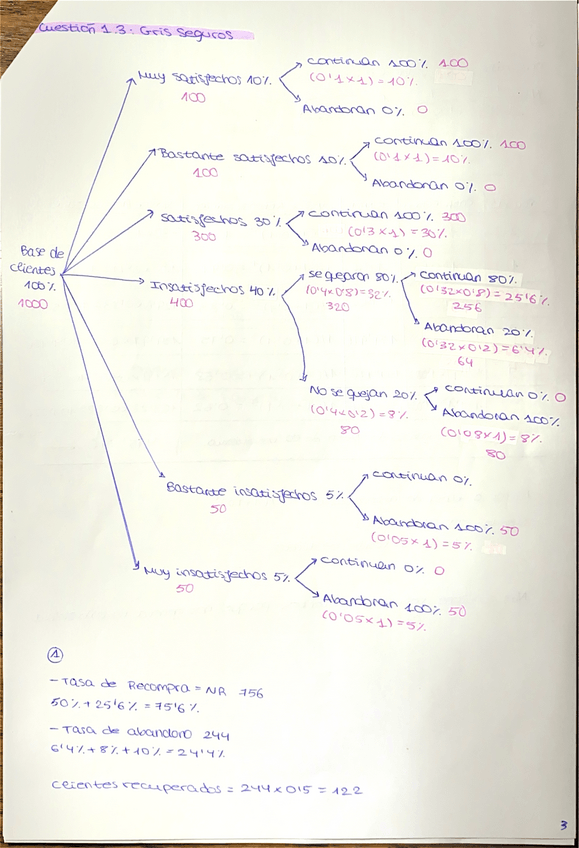 Cuestión 1.3: Gris Seguros
Muy satisfechos 10%
100
Continúan 100% 100
(0'1x1)=10%
Abandonan 0% 0
Bastante satisfechos 10%
100
Continúan 100% 100
(0'1x1)=10%
Abandonan 0% 0
Satisfechos 30%
300
Continúan 100% 300
(0'3x1)=30%
Abandonan 0% 0
Base de
clientes
100%
1000
Insatisfechos 40%
400
se quejan 80%
(0'4x0'8)=32%
320
Continúan 80%
(0'32x0'8)=25'6%
256
Abandonan 20%
(0'32x0'2)=6'4%
64
No se quejan 20%
(0'4x0'2)=8%
80
Continúan 0% 0
Abandonan 100%
(0'08x1)=8%
80
Bastante insatisfechos 5%
50
Continúan 0%
Abandonan 100% 50
(0'05x1)=5%
Muy insatisfechos 5%
50
Continúan 0% 0
Abandonan 100% 50
(0'05x1)=5%
1
- Tasa de Recompra = NR 756
50%+25'6%=75'6%
- Tasa de abandono 244
6'4%+8%+10%=24'4%
Clientes recuperados = 244x0'5 = 122
3